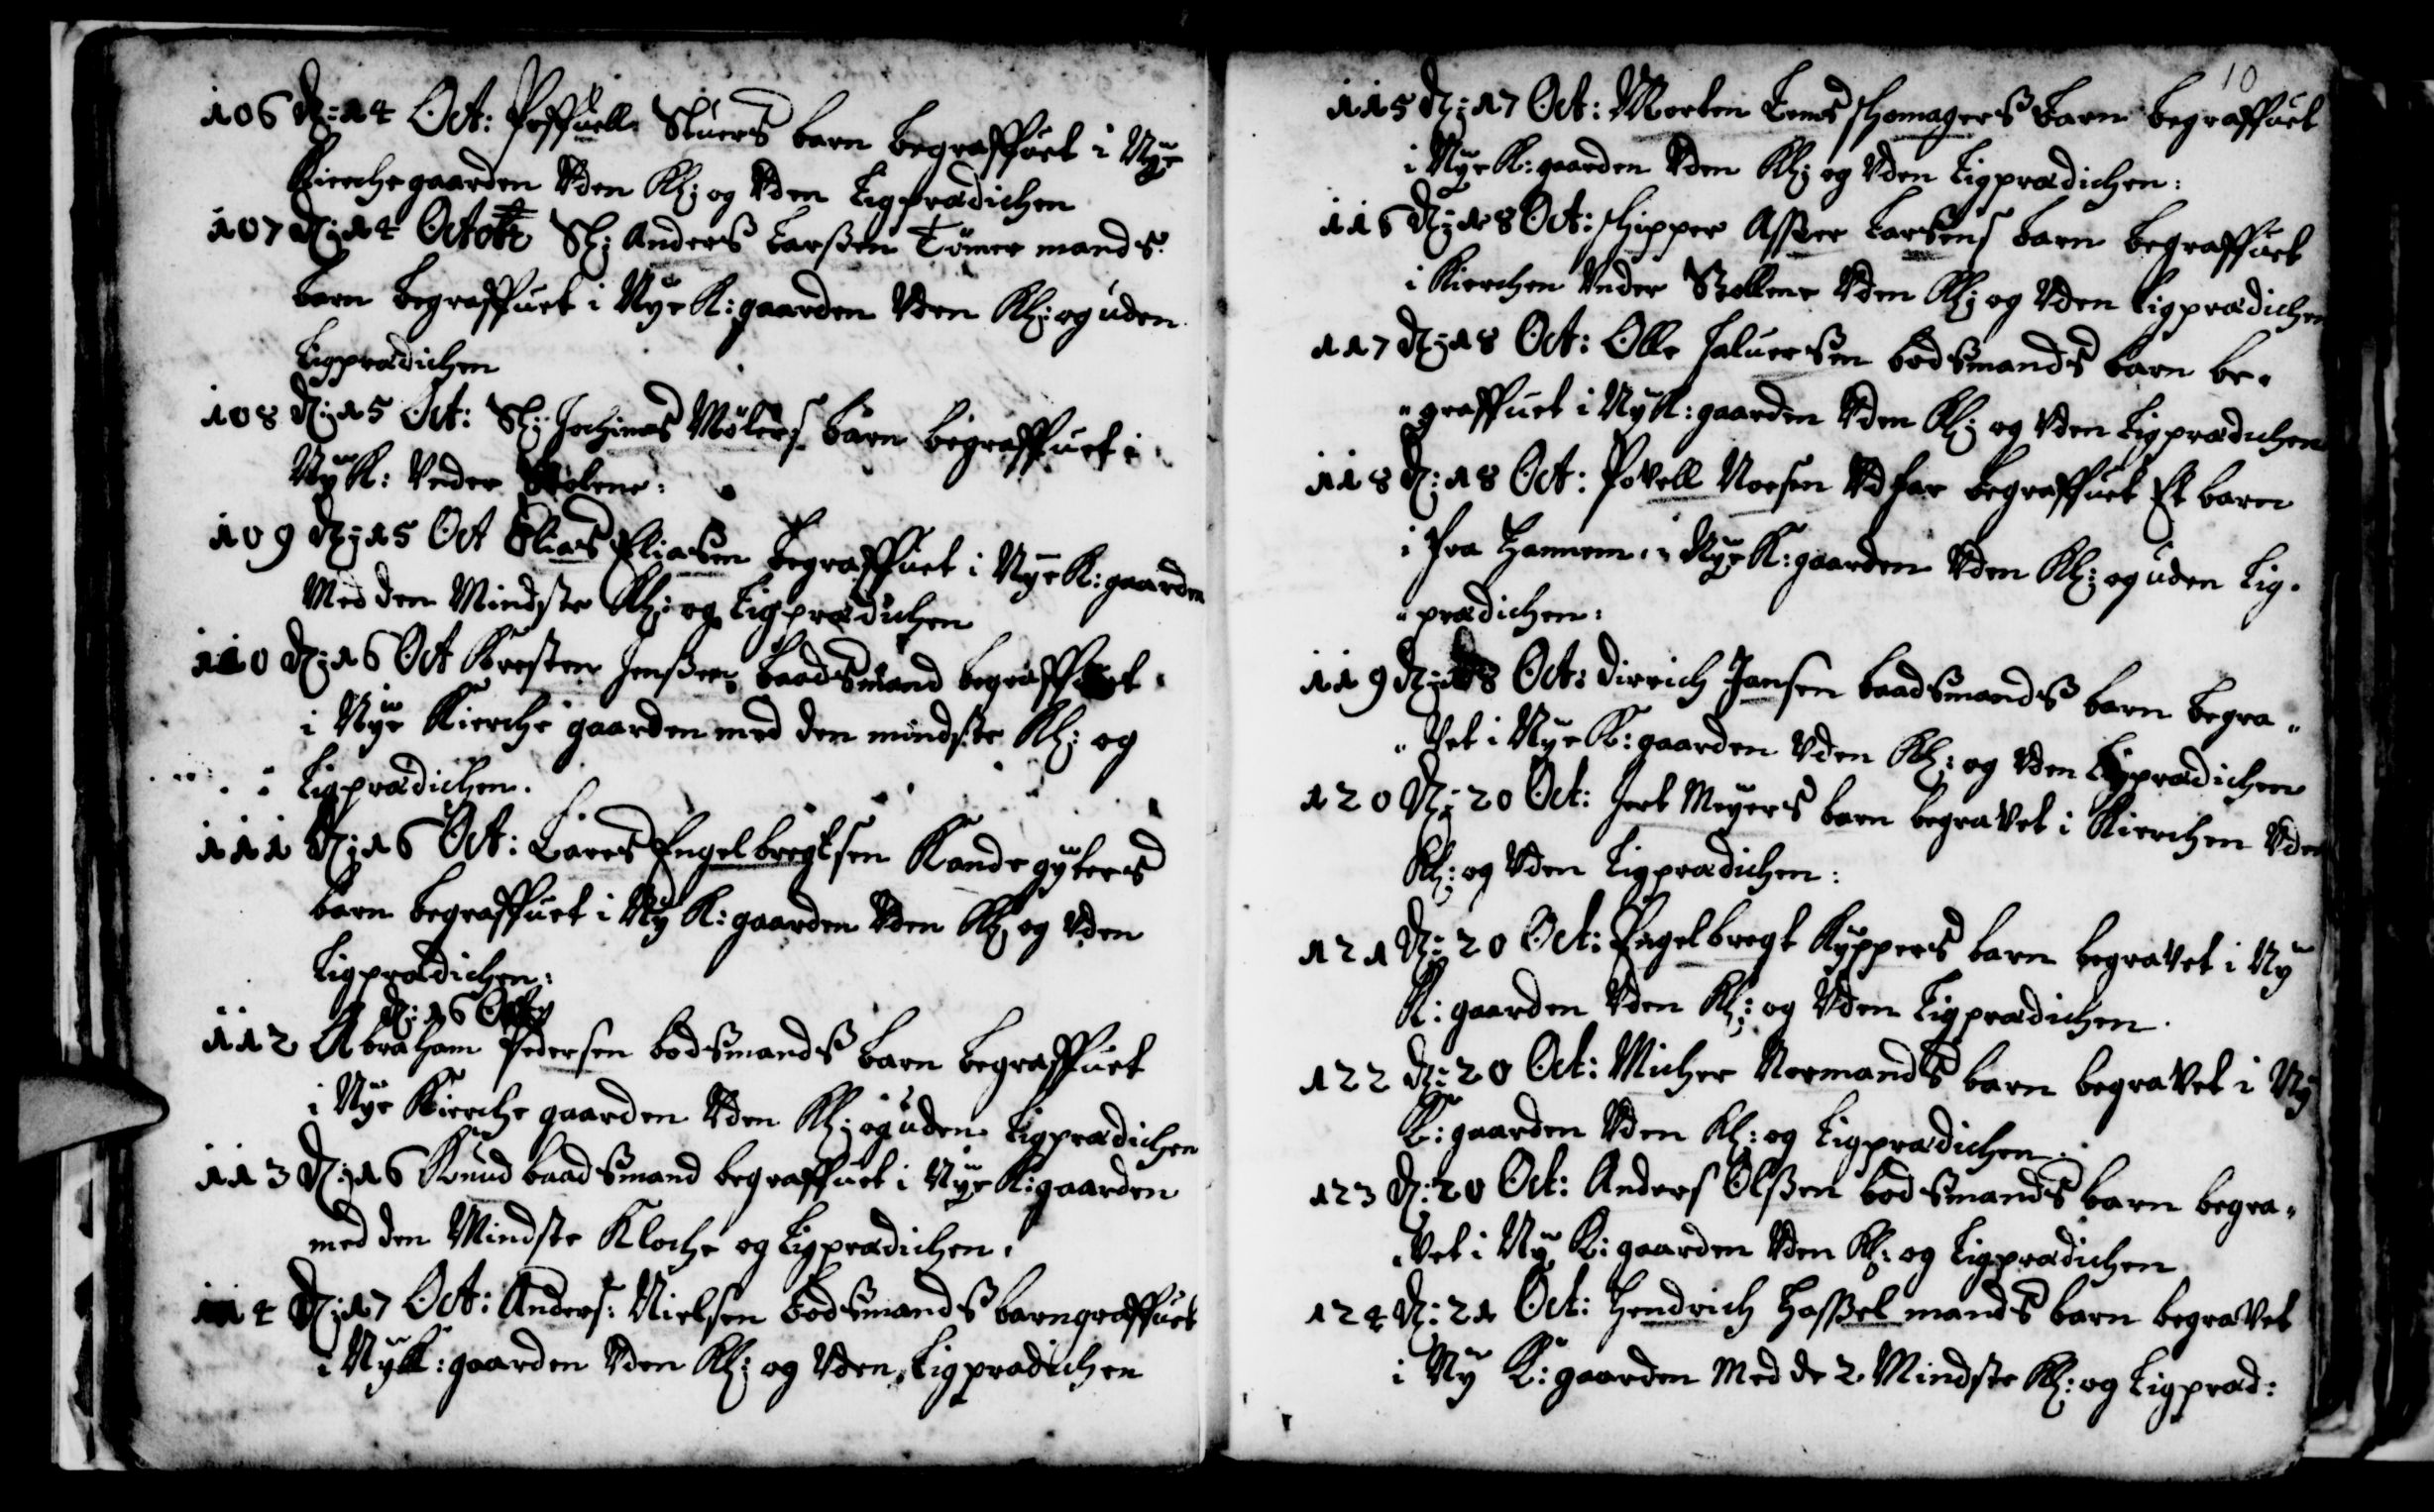 106 D: 14 Oct: Poffuell Stuers barn begraffuet i Nÿe
Kierche gaarden Vden Kl: og Vden Ligprædichen
107 D: 14 Octob Sl: Anderß Larßen Tömer mands
barn begraffuet i Nÿe K: gaarden Vden Kl: og uden
Ligprædichen
108 D: 15 Oct: Sl: Jochims Mölers barn begraffuet i
Nÿ K: Vnder Stolene:
109 D: 15 Oct Elias Eliasen begraffuet i Nÿe K: gaarden
Med den Mindste Kl: og Ligprædichen
110 D: 16 Oct Kresten Jenßen baadsmand begraffuet
i Nÿe Kierche gaarden med den mindste Kl: og
Ligprædichen.
111 D: 16 Oct: Lares Engelbregtsen Kandegÿters
barn begraffuet i Nÿ K: gaarden Vden Kl: og Vden
Ligprædichen:
D: 16 Oct
112 Abraham Pedersen bodsmandß barn begraffuet
i Nÿe Kierche gaarden Vden Kl: og uden Ligprædichen
113 D: 16 Knud baadsmand begraffuet i Nÿe K: gaarden
med den Mindste Kloche og Ligprædichen.
114 D: 17 Oct: Anders: Nielsen bodsmandß barn graffuet
i Nÿ K: gaarden Vden Kl: og Vden Ligprædichen
10
115 D: 17 Oct: Morten shomagerß barn begraffuet
i Nÿe K: gaarden Vden Kl: og Vden Ligprædichen:
116 D: 18 Oct: shipper Asser Larsens barn begraffuet
i Kierchen Vnder Stollene Vden Kl: og Vden Ligprædichen
117 D: 18 Oct: Olle Haluersen bodsmands barn be-
graffuet i Nÿ K: gaarden Vden Kl: og Vden Ligprædichen
118 D: 18 Oct: Povell Noesen begraffuet Et barn
i fra Hannem i Nÿe K: gaarden Vden Kl: og uden Lig-
prædichen:
119 D: 18 Oct: Dirrich Jansen baadsmandß barn begra-
Vet i Nÿe K: gaarden Vden Kl: og Vden Ligprædichen
120 D: 20 Oct: Gert Meÿers barn begraVet i Kierchen Vden
Kl: og Vden Ligprædichen:
121 D: 20 Oct: Engelbregt Kÿppers barn begraVet i Nÿ
K: gaarden Vden Kl: og Vden Ligprædichen.
122 D: 20 Oct: Micher Normands barn begraVet i Nÿ
K: gaarden Vden Kl: og Ligprædichen.
123 D: 20 Oct: Anders Olßen bodsmands barn begra-
Vet i Nÿ K: gaarden Vden Kl: og Ligprædichen
124 D: 21 Oct: Hendrich Hasselmands barn begraVet
i Nÿ K: gaarden Med de 2 Mindste Kl: og Ligpræd: